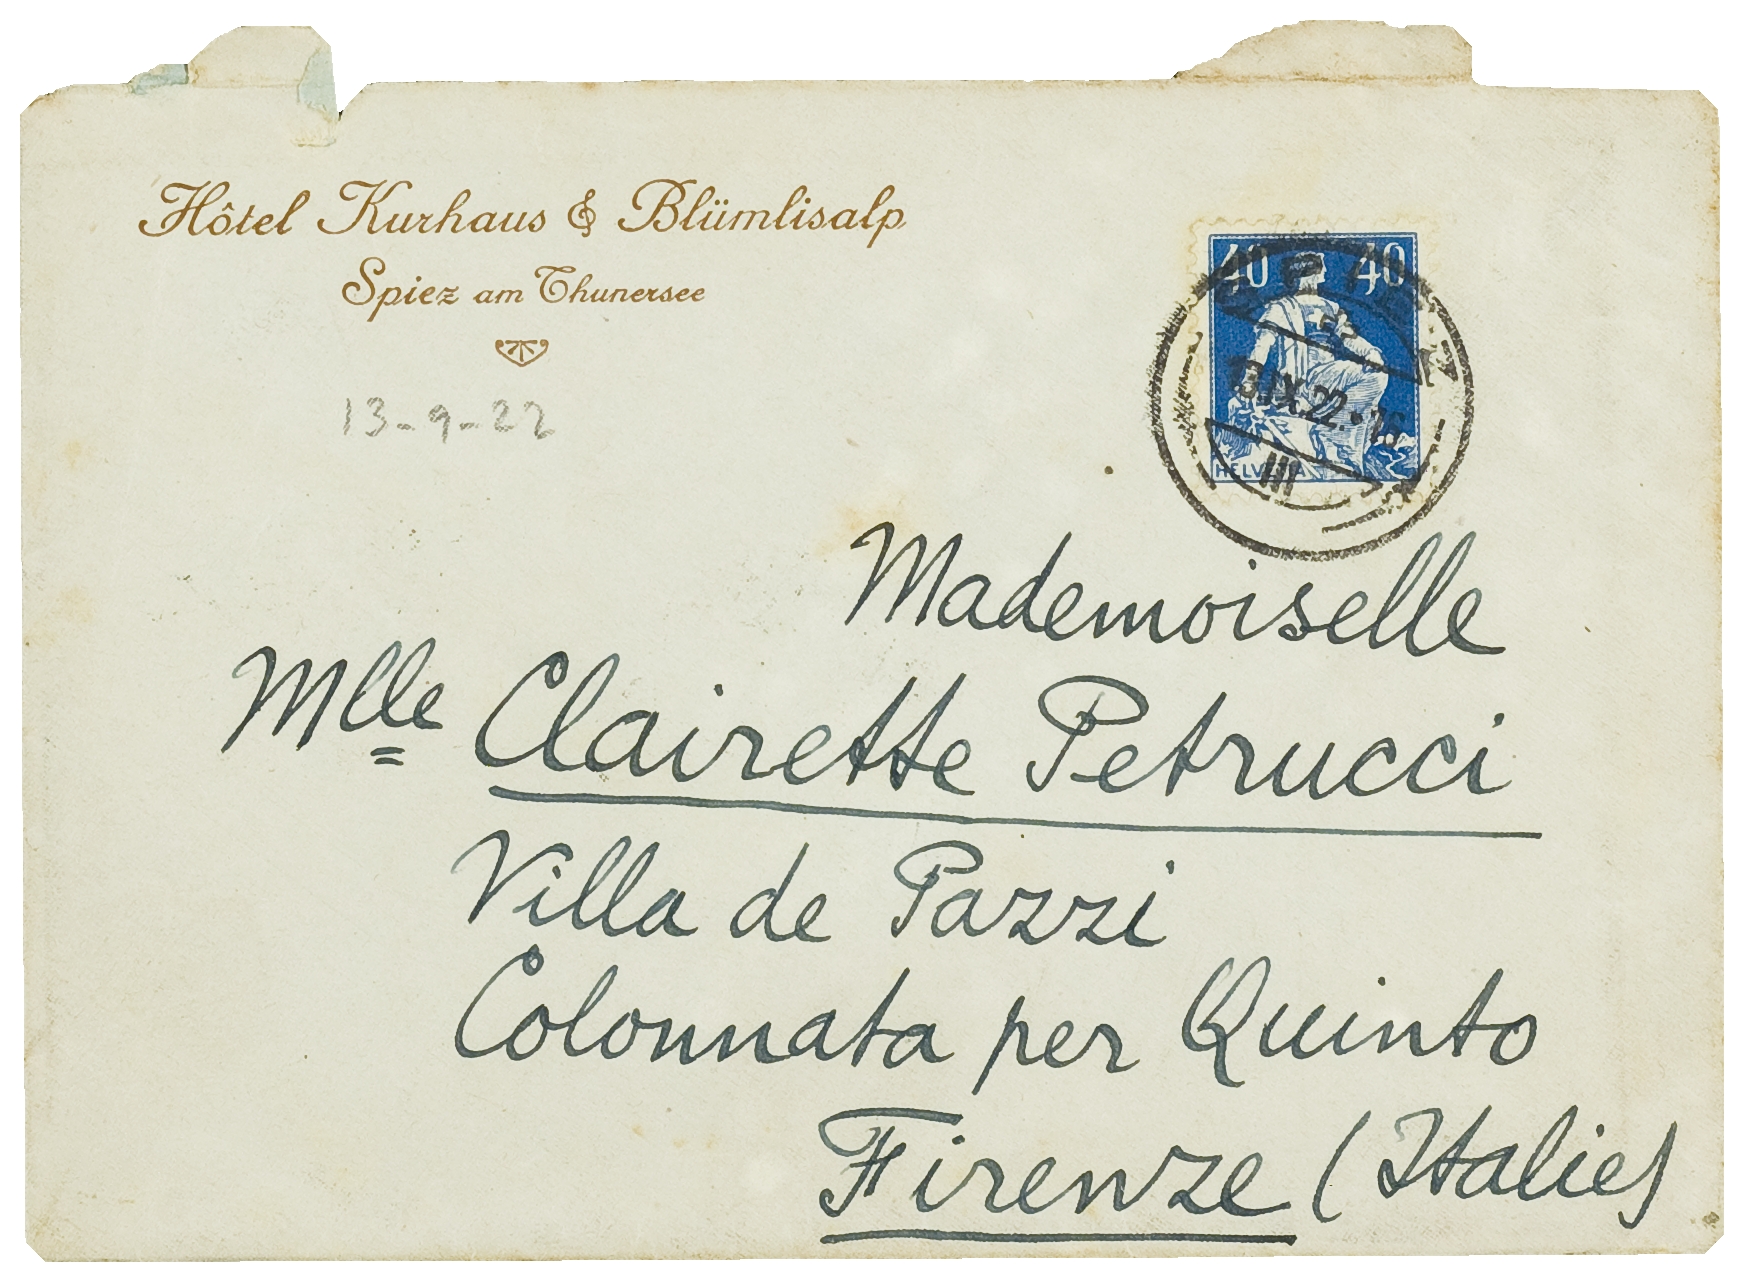 Hôtel Kurhaus & Blümlisalp
Spiez am Thunersee
13-9-22
40 40
13.IX.22.
III
HELVETIA
Mademoiselle
Mlle Clairette Petrucci
Villa de Pazzi
Colonnata per Quinto
Firenze (Italie)